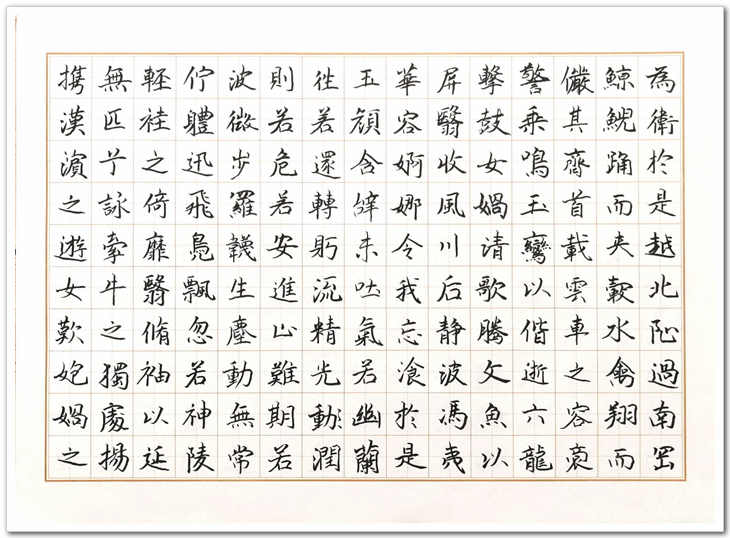 為衛於是越北沚過南岡
鯨鯢踊而夾轂水禽翔而
儼其齊首載雲車之容裔
警乗鳴玉鸞以偕逝六龍
擊鼓女媧清歌騰文魚以
屏翳收風川后静波馮夷
華容婀娜令我忘湌於是
玉顔含辝未吐氣若幽蘭
徃若還轉眄流精光動潤
則若危若安進止難期若
波微步羅韈生塵動無常
佇軆迅飛鳧飄忽若神陵
輕袿之倚靡翳脩袖以延
無匹兮詠牽牛之獨處揚
携漢濱之遊女歎匏媧之